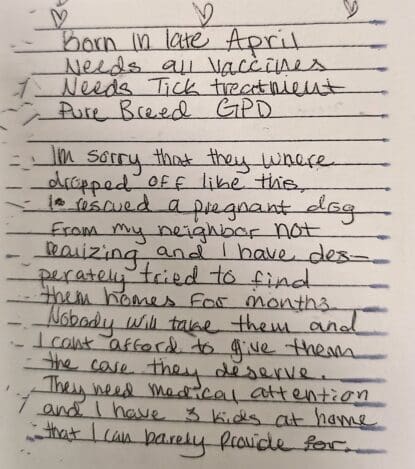 Born in late April
Needs all vaccines
Needs Tick treatment
Pure Breed GPD
Im sorry that they where
dropped off like this.
I rescued a pregnant dog
from my neighbor not
realizing and I have des-
perately tried to find
them homes for months.
Nobody will take them and
I cant afford to give them
the care they deserve.
They need medical attention
and I have 3 kids at home
that I can barely provide for.